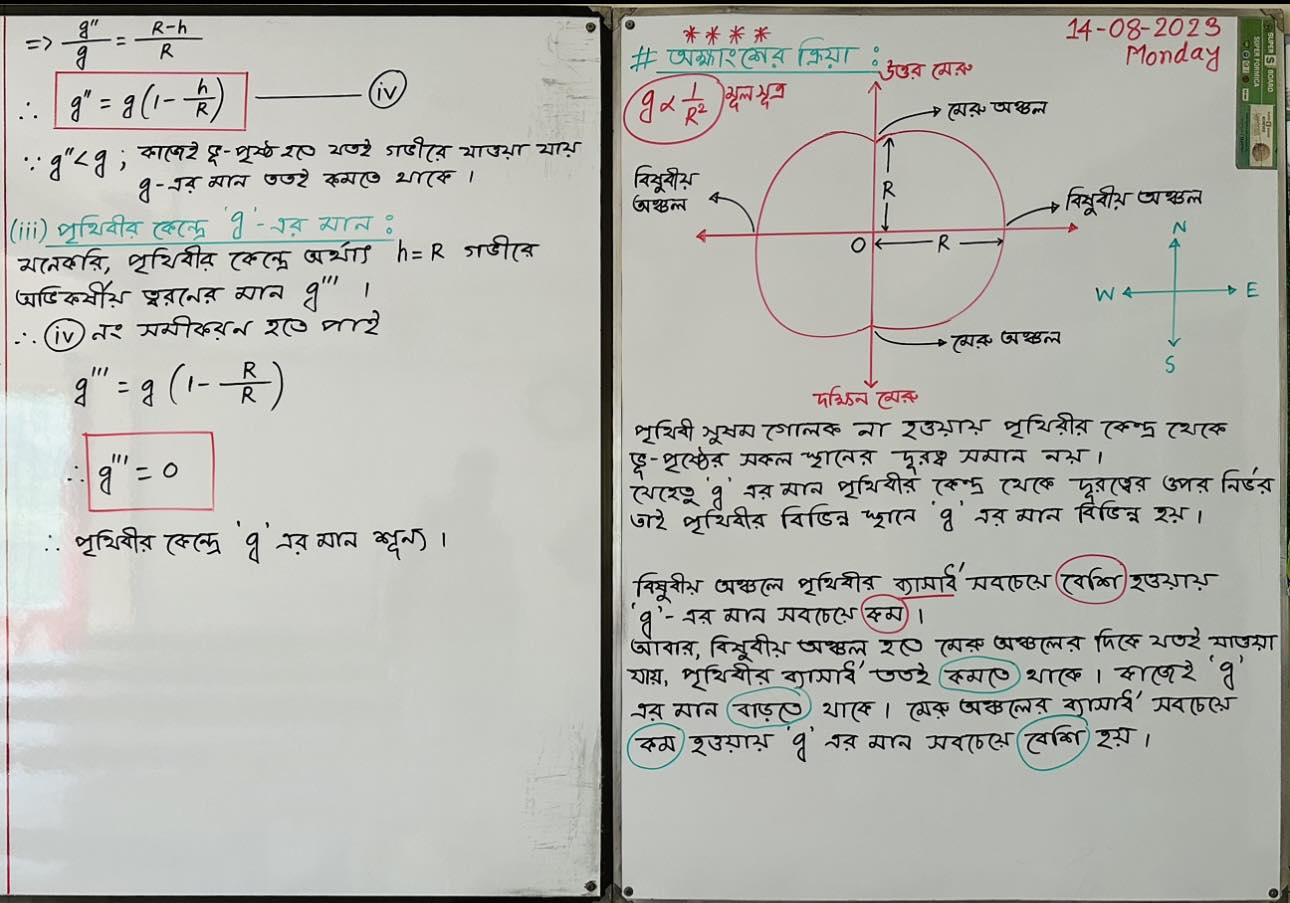 => g″/g = (R-h)/R
∴ g″ = g(1 - h/R) ——— (iv)
∵ g″<g ; কাজেই ভূ-পৃষ্ঠ হতে যতই গভীরে যাওয়া যায়
g-এর মান ততই কমতে থাকে ।
(iii) পৃথিবীর কেন্দ্রে 'g'-এর মান :
মনেকরি, পৃথিবীর কেন্দ্রে অর্থাৎ h=R গভীরে
অভিকর্ষীয় ত্বরনের মান g‴ ।
∴ (iv) নং সমীকরন হতে পাই
g‴ = g (1 - R/R)
∴ g‴ = 0
∴ পৃথিবীর কেন্দ্রে 'g' এর মান শূন্য ।
14-08-2023
Monday
* * * *
# অক্ষাংশের ক্রিয়া :
g ∝ 1/R² মূলসূত্র
উত্তর মেরু
মেরু অঞ্চল
বিষুবীয়
অঞ্চল
R
বিষুবীয় অঞ্চল
O
R
N
W
E
S
মেরু অঞ্চল
দক্ষিন মেরু
পৃথিবী সুষম গোলক না হওয়ায় পৃথিবীর কেন্দ্র থেকে
ভূ-পৃষ্ঠের সকল স্থানের দূরত্ব সমান নয় ।
যেহেতু 'g' এর মান পৃথিবীর কেন্দ্র থেকে দূরত্বের ওপর নির্ভর
তাই পৃথিবীর বিভিন্ন স্থানে 'g' এর মান বিভিন্ন হয় ।
বিষুবীয় অঞ্চলে পৃথিবীর ব্যাসার্ধ সবচেয়ে বেশি হওয়ায়
'g'-এর মান সবচেয়ে কম ।
আবার, বিষুবীয় অঞ্চল হতে মেরু অঞ্চলের দিকে যতই যাওয়া
যায়, পৃথিবীর ব্যাসার্ধ ততই কমতে থাকে । কাজেই 'g'
এর মান বাড়তে থাকে । মেরু অঞ্চলের ব্যাসার্ধ সবচেয়ে
কম হওয়ায় 'g' এর মান সবচেয়ে বেশি হয় ।
SUPER S BOARD
SUPER FORMICA